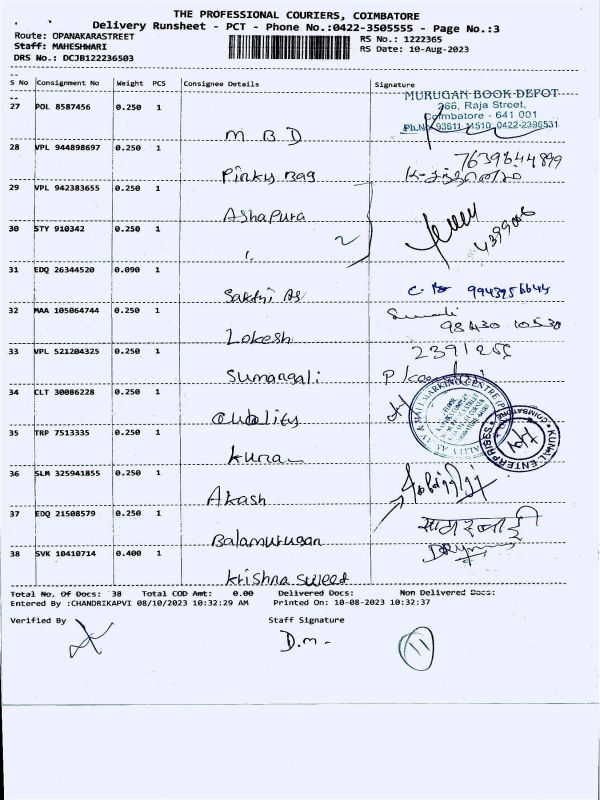 THE PROFESSIONAL COURIERS, COIMBATORE
Delivery Runsheet - PCT - Phone No.:0422-3505555 - Page No.:3
Route: OPANAKARASTREET RS No.: 1222365
Staff: MAHESHWARI RS Date: 10-Aug-2023
DRS No.: DCJB122236503
S No Consignment No Weight PCS Consignee Details Signature
27 POL 8587456 0.250 1
MURUGAN BOOK DEPOT
266, Raja Street,
Coimbatore - 641 001
M B D
28 VPL 944898697 0.250 1
Pinky Bag
29 VPL 942383655 0.250 1
Ashapura
30 STY 910342 0.250 1
2
31 EDQ 26344520 0.090 1
Sakthi
32 MAA 105064744 0.250 1
Lokesh 98430 10530
33 VPL 521204325 0.250 1
Sumangali
34 CLT 30086228 0.250 1
Quality
35 TRP 7513335 0.250 1
KUNAL ENTERPRISES
36 SLM 325941855 0.250 1
Akash
37 EDQ 21508579 0.250 1
Balamurugan
38 SVK 10410714 0.400 1
Krishna Sweet
Total No. Of Docs: 38 Total COD Amt: 0.00 Delivered Docs: Non Delivered Docs:
Entered By :CHANDRIKAPVI 08/10/2023 10:32:29 AM Printed On: 10-08-2023 10:32:37
Verified By Staff Signature
D.m.
11